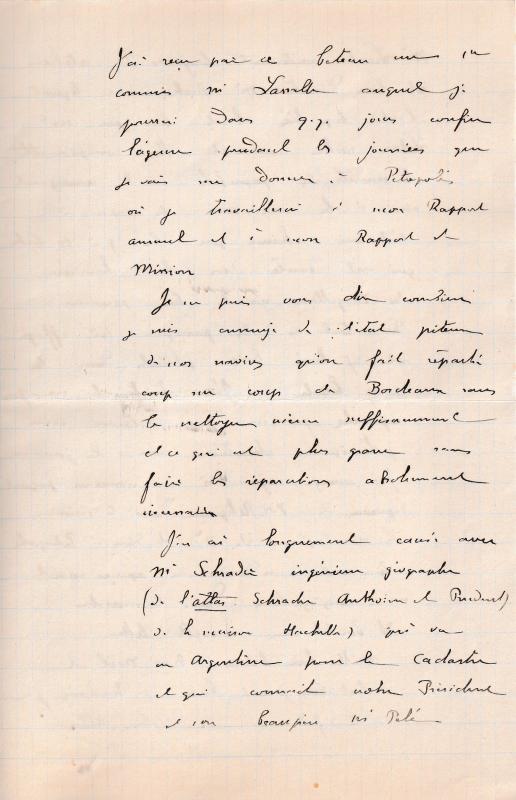 J'ai reçu par ce bateau un
commis Mr Lassalle auquel je
pourrai dans q.q. jours confier
l'agence pendant les journées que
je vais me donner à Petropolis
où je travaillerai à mon Rapport
annuel et à mon Rapport de
Mission
Je ne puis vous dire combien
je suis ennuyé de l'état piteux
de nos navires qu'on fait repartir
coup sur coup de Bordeaux sans
les nettoyer même suffisamment
et ce qui est plus grave sans
faire les réparations absolument
nécessaires
J'en ai longuement causé avec
Mr Schrader ingénieur géographe
(de l'atlas Schrader Anthoine et Prudent)
de la maison Hachette) qui va
en Argentine pour le Cadastre
et qui connait notre Président
et son beau père Mr